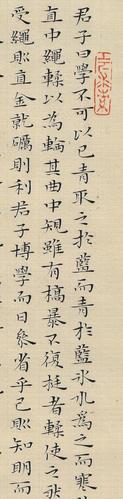 君子曰學不可以已青取之於藍而青於藍冰水為之而寒
直中繩輮以為輪其曲中規雖有槁暴不復挺者輮使之然
受繩則直金就礪則利君子博學而日參省乎己則知明而